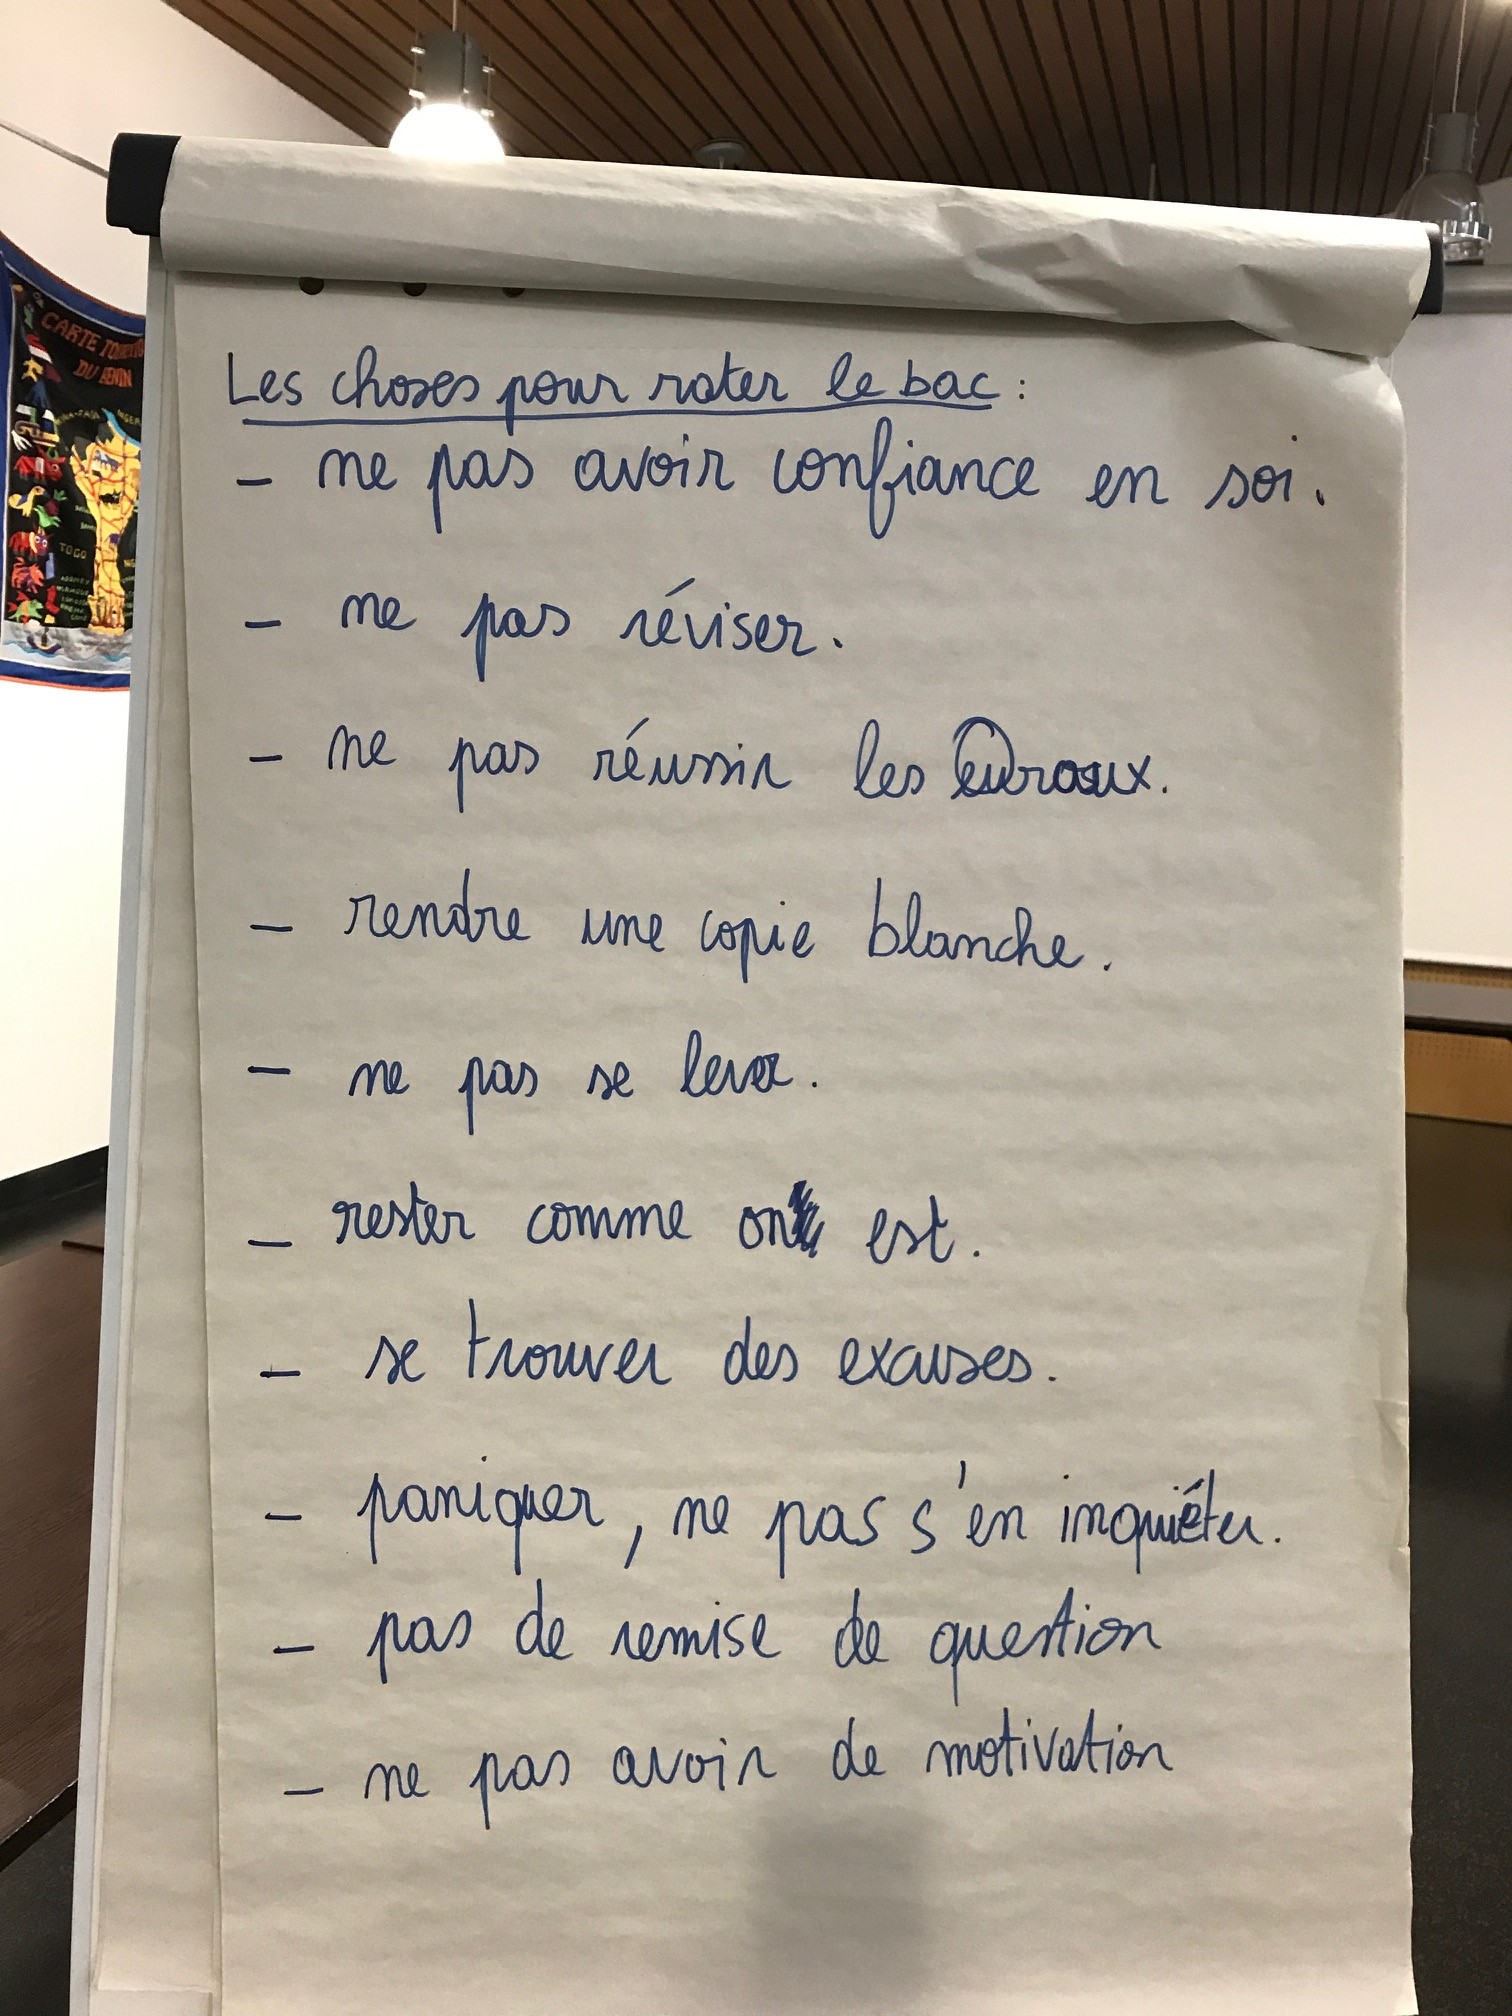 CARTE
DU BENIN
TOGO
Les choses pour rater le bac :
– ne pas avoir confiance en soi.
– ne pas réviser.
– ne pas réussir les
– rendre une copie blanche.
– ne pas se lever.
– rester comme on est.
– se trouver des excuses.
– paniquer, ne pas s'en inquiéter.
– pas de remise de question
– ne pas avoir de motivation